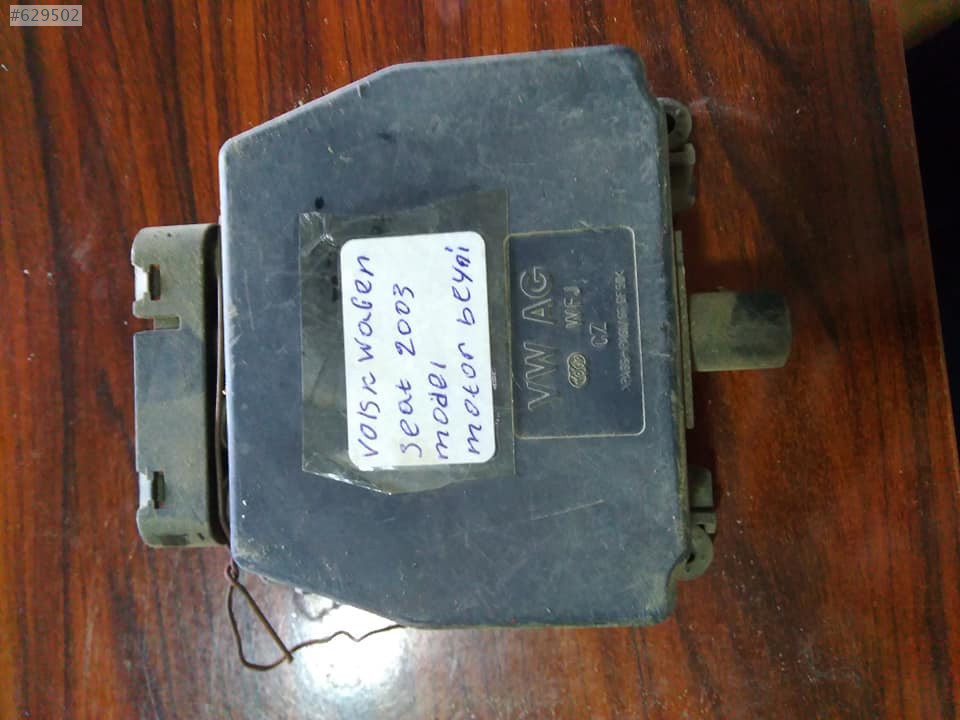 #629502
volskwagen
seat 2003
model
motor beyni
VW AG
WFJ
CZ